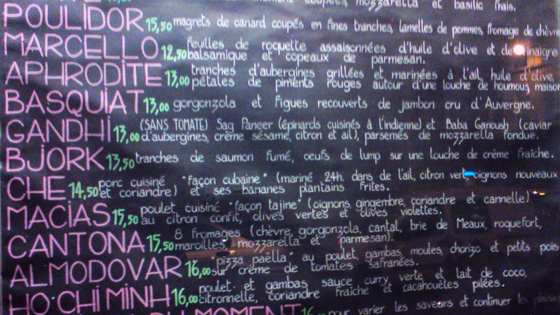 coupées, mozzarella et basilic frais.
POULIDOR 15,50 magrets de canard coupés en fines tranches, lamelles de pommes, fromage de chèvre
MARCELLO 12,50 feuilles de roquette assaisonnées d'huile d'olive et de vinaigre
balsamique et copeaux de parmesan.
APHRODITE 13,00 tranches d'aubergines grillées et marinées à l'ail, huile d'olive
pétales de piments rouges autour d'une louche de houmous maison
BASQUIAT 13,00 gorgonzola et figues recouverts de jambon cru d'Auvergne.
GANDHI 13,00 (SANS TOMATE) Sag Paneer (épinards cuisinés à l'indienne) et Baba Ganoush (caviar
d'aubergines, crème sésame, citron et ail), parsemés de mozzarella fondue.
BJORK 13,50 tranches de saumon fumé, oeufs de lump sur une louche de crème fraîche.
CHE 14,50 porc cuisiné "façon cubaine" (mariné 24h. dans de l'ail, citron vert, oignons nouveaux
et coriandre) et ses bananes plantains frites.
MACIAS 15,50 poulet cuisiné "façon tajine" (oignons, gingembre, coriandre et cannelle)
au citron confit, olives vertes et olives violettes.
CANTONA 15,50 8 fromages (chèvre, gorgonzola, cantal, brie de Meaux, roquefort,
maroilles, mozzarella et parmesan).
ALMODOVAR 16,00 "pizza paëlla" au poulet, gambas, moules, chorizo et petits pois
sur crème de tomates safranées.
HO·CHI MINH 16,00 poulet et gambas sauce curry verte et lait de coco,
citronnelle, coriandre fraîche et cacahouètes pilées.
DU MOMENT 16 pour varier les saveurs et continuer les